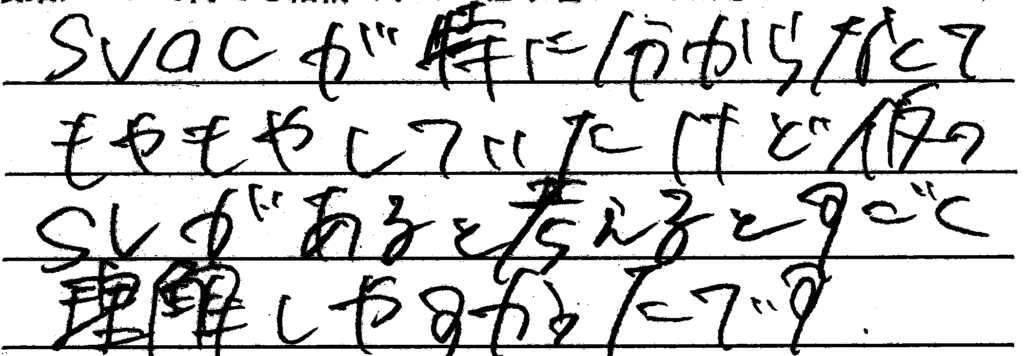 SVOCが特に分からなくて
もやもやしていたけど仮の
SVがあると考えるとすごく
理解しやすかったです.